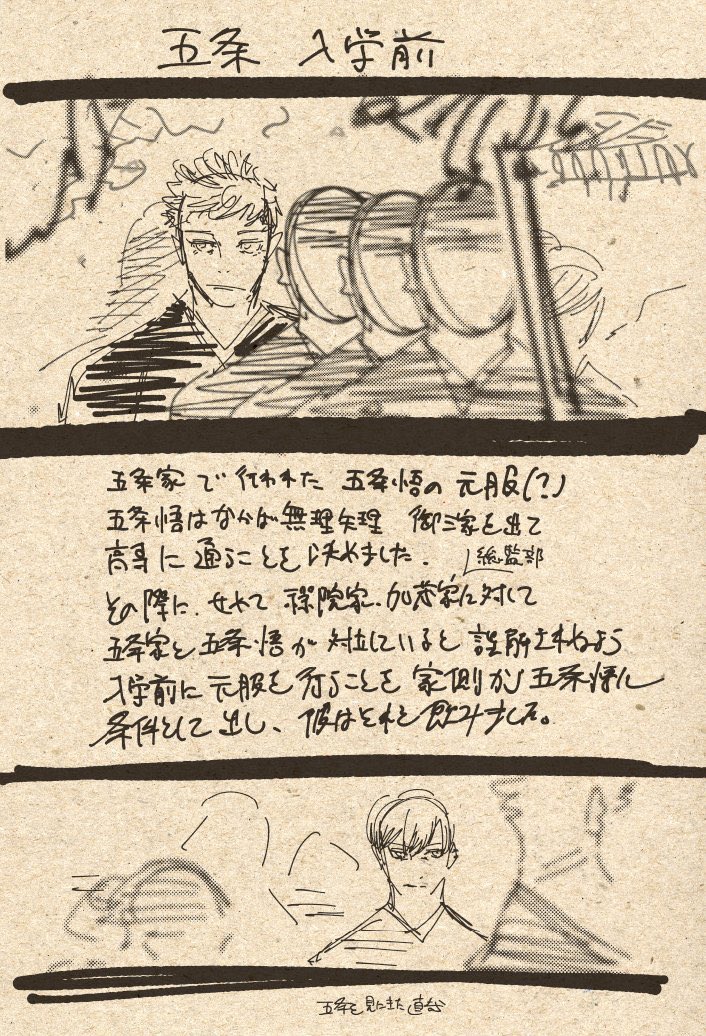 五条 入学前
五条家で行われた 五条悟の 元服(?)
五条悟はなかば無理矢理 御三家を出て
高専に通うことを決めました.
総監部
その際に、せめて 禪院家、加茂家に対して
五条家と五条悟が 対立していると 誤解されぬよう
入学前に 元服を行うことを 家側が 五条悟に
条件として出し、彼はそれを飲みました。
五条を見にきた直哉